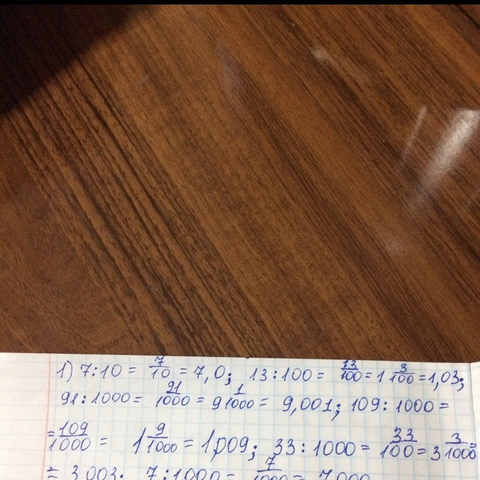 1) 7:10 = 7/10 = 7,0; 13:100 = 13/100 = 1 3/100 = 1,03;
91:1000 = 91/1000 = 9 1/1000 = 9,001; 109:1000 =
= 109/1000 = 1 9/1000 = 1,009; 33:1000 = 33/100 = 3 3/1000 =
= 3,003; 7:1000 = 7/1000 = 7,000